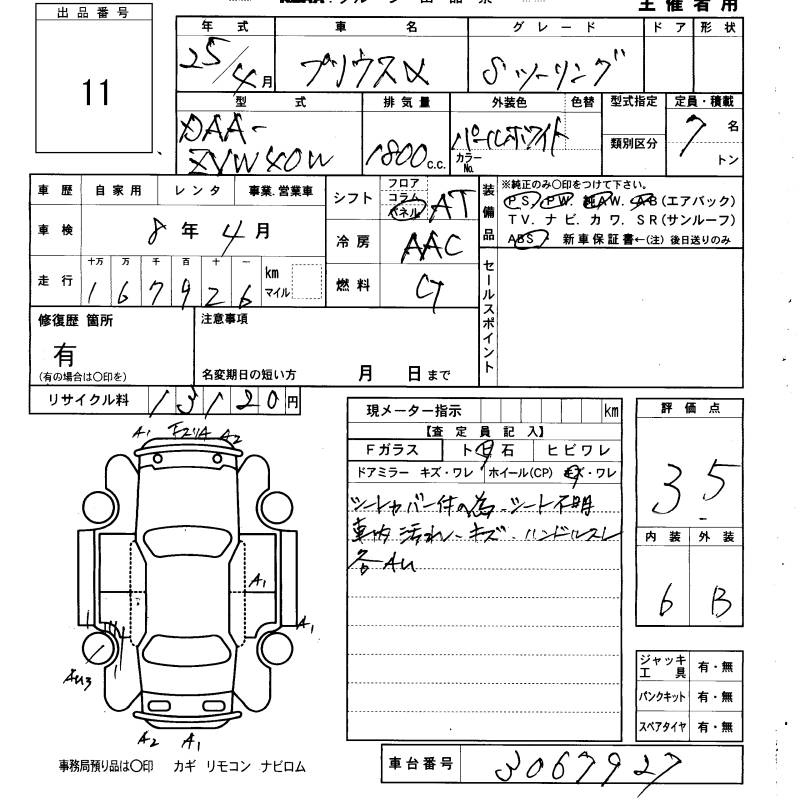 主催者用
出品番号
11
年式 車名 グレード ドア 形状
25/4月 プリウスα Sツーリング
型式 排気量 外装色 色替 型式指定 定員・積載
DAA-
ZVW40W 1800c.c. パールホワイト カラーNo. 類別区分 7名
トン
車歴 自家用 レンタ 事業.営業車
車検 8年4月
走行 十万 万 千 百 十 一 km マイル
167926
シフト フロア コラム パネル AT
冷房 AAC
燃料 G
装備品 ※純正のみ〇印をつけて下さい。
PS. PW. 純AW. AB(エアバック)
TV. ナビ. カワ. SR(サンルーフ)
ABS 新車保証書←(注)後日送りのみ
セールスポイント
修復歴 箇所 注意事項
有
(有の場合は〇印を) 名変期日の短い方 月 日まで
リサイクル料 13120円
現メーター指示 km
【査定員記入】
Fガラス ト 石 ヒビワレ
ドアミラー キズ・ワレ ホイール(CP) キズ・ワレ
シートカバー付の為、シート不明
車内 汚れ、キズ、ハンドルスレ
各AU
評価点
3.5
内装 外装
6 B
ジャッキ工具 有・無
パンクキット 有・無
スペアタイヤ 有・無
A1 A2
A1
A1
AU3
A2 A1
事務局預り品は〇印 カギ リモコン ナビロム
車台番号 3067927